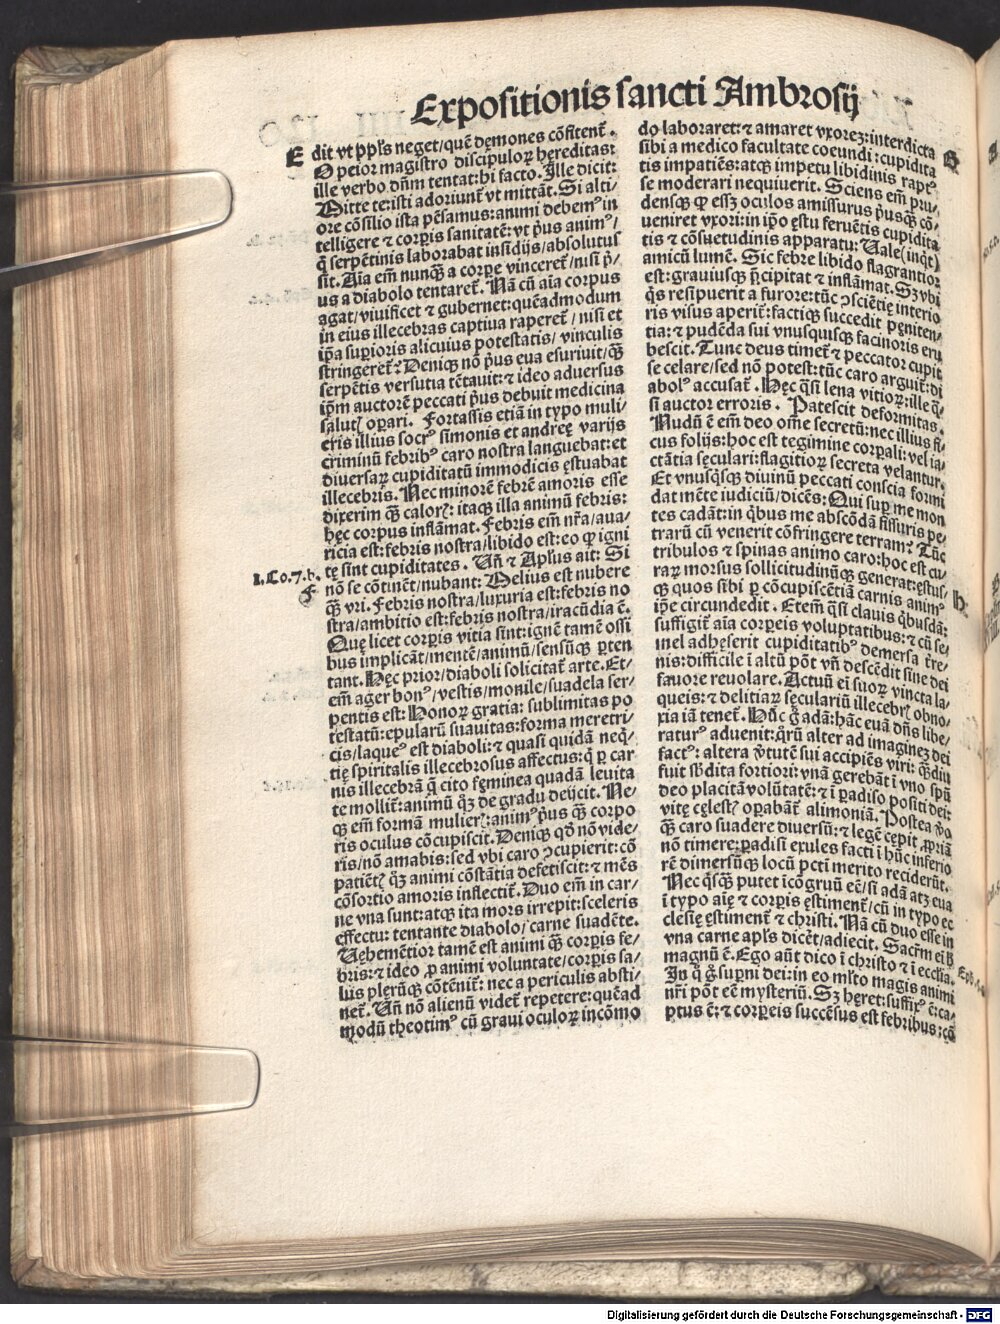 Expositionis sancti Ambrosij
E
dit vt ppl's neget/quē dęmones cōfitentᷣ.
O peior magistro discipuloꝝ hereditas:
ille verbo dn̄m tentat: hi facto. Ille dicit:
Mitte te: isti adoriunt᷑ vt mittāt. Si alti/
ore cōsilio ista pēsamus: animi debemꝰ in
telligere ⁊ corꝑis sanitatē: vt p̓us animꝰ/
q̓ serpētinis laborabat insidijs/absolutus
sit. Aīa em̄ nunqͣ̄ a corꝑe vinceret᷑/nisi p̓/
us a diabolo tentaret᷑. Nā cū aīa corpus
agat/viuificet ⁊ gubernet: quēadmodum
in eius illecebras captiua raperet᷑/ nisi et
ip̄a suꝑioris alicuius potestatis/ vinculis
stringeret᷑? Deniqꝫ nō p̓us eua esuriuit/qͣꝫ
serpētis versutia tētauit: ⁊ ideo aduersus
ip̄m auctorē peccati p̓us debuit medicina
salutꝭ oꝑari. Fortassis etiā in typo muli/
eris illius socrꝰ simonis et andreę varijs
criminū febribꝰ caro nostra languebat: et
diuersaꝝ cupiditatū immodicis ęstuabat
illecebris. Nec minorē febrē amoris esse
dixerim qͣꝫ calorꝭ: itaqꝫ illa animū febris:
hęc corpus inflāmat. Febris em̄ nr̄a/aua/
ricia est: febris nostra/libido est: eo ꝙ igni
tę sint cupiditates. Un̄ ⁊ Apl's ait: Si
1. Co. 7. b.
nō se cōtinēt/nubant: Melius est nubere
F
qͣꝫ vri. Febris nostra/luxuria est: febris no
stra/ambitio est: febris nostra/iracūdia ē.
Quę licet corꝑis vitia sint: ignē tamē ossi
bus implicāt/mentē/animū/sensūqꝫ ꝑten
tant. Hęc prior/diaboli solicitat᷑ arte. Et/
em̄ ager bonꝰ/vestis/monile/suadela ser/
pentis est: Honoꝝ gratia: sublimitas po
testatū: epularū suauitas: forma meretri/
cis/laqueꝰ est diaboli: ⁊ quasi quidā neq̓/
tię spiritalis illecebrosus affectus: q̓ ꝑ car
nis illecebrā q̓ cito fęminea quadā leuita
te mollit᷑: animū qͦꝫ de gradu deijcit. Ne/
qꝫ em̄ formā mulierꝭ: animꝰ p̓us qͣꝫ corpo
ris oculus cōcupiscit. Deniqꝫ qd̓ nō vide/
ris/nō amabis: sed vbi caro ꝯcupierit: cō
patiētꝭ qͦꝫ animi cōstātia defetiscit: ⁊ mēs
cōsortio amoris inflectit᷑. Duo em̄ in car/
ne vna sunt: atqꝫ ita mors irrepit: sceleris
effectu: tentante diabolo/carne suadēte.
Vęhemētior tamē est animi qͣꝫ corꝑis fe/
bris: ⁊ ideo ꝓ animi voluntate/corꝑis sa/
lus plerūqꝫ cōtēnit᷑: nec a periculis absti/
net᷑. Un̄ nō alienū videt᷑ repetere: quēad
modū theotimꝰ cū graui oculoꝝ incōmo
do laboraret: ⁊ amaret vxoreꝫ: interdicta
G
sibi a medico facultate coeundi: cupidita
tis impatiēs: atqꝫ impetu libidinis raptꝰ
se moderari nequiuerit. Sciens em̄ pru/
densqꝫ ꝙ esseꝫ oculos amissurus p̓usqͣꝫ cō/
ueniret vxori: in ip̄o ęstu feruētis cupidita
tis ⁊ cōsuetudinis apparatu: Uale(inq̓t)
amicū lumē. Sic febre libido flagrantior
est: grauiusqꝫ p̄cipitat ⁊ inflāmat. Sꝫ vbi
q̓s resipuerit a furore: tūc ꝯsciētię interio
ris visus aperit᷑: factiqꝫ succedit pęniten/
tia: ⁊ pudēda sui vnusquisqꝫ facinoris eru
bescit. Tunc deus timet᷑ ⁊ peccator cupit
se celare/sed nō potest: tūc caro arguit᷑: di
abolꝰ accusat᷑. Hęc q̓si lena vitioꝝ: ille q̓/
si auctor erroris. Patescit deformitas.
Nudū ē em̄ deo om̄e secretū: nec illius fi/
cus folijs: hoc est tegimine corꝑali: vel ia/
ctātia sęculari: flagitioꝝ secreta velantur.
Et vnusq̓sqꝫ diuinū peccati conscia formi
dat mēte iudiciū/dicēs: Qui suꝑ me mon
tes cadāt: in q̓bus me abscōdā fissuris pe/
trarū cū venerit cōfringere terram? Tūc
tribulos ⁊ spinas animo caro: hoc est cu/
raꝝ morsus sollicitudinūqꝫ generat: ęstus/
H
qꝫ quos sibi ꝑ cōcupiscētiā carnis animꝰ
ip̄e circundedit. Etem̄ q̓si clauis q̓busdā:
suffigit᷑ aīa corꝑeis voluptatibus: ⁊ cū se/
mel adhęserit cupiditatibꝰ demersa t̓re/
nis: difficile ī altū pōt vn̄ descēdit sine dei
fauore reuolare. Actuū em̄ suoꝝ vincta la/
queis: ⁊ delitiaꝝ sęculariū illecebrꝭ obno/
xia iā tenet᷑. Hūc g̓ adā: hāc euā dn̄s libe/
raturꝰ aduenit: q̓rū alter ad imagineꝫ dei
factꝰ: altera v̓tutē sui accipiēs viri: qͣꝫdiu
fuit sb̓dita fortiori: vnā gerebāt ī vno spū
deo placitā volūtatē: ⁊ ī ꝑadiso positi dei:
vitę cęlestꝭ oꝑabāt᷑ alimoniā. Postea v̓o
qͣꝫ caro suadere diuersū: ⁊ legē cępit ꝓpriā
nō timere: ꝑadisi exules facti ī hūc inferio
rē dimersūqꝫ locū pcti merito reciderūt.
Nec q̓sqͣꝫ putet īcōgruū eē/si adā atqꝫ eua
ī typo aię ⁊ corꝑis ęstiment᷑/cū in typo ec
clesię ęstiment᷑ ⁊ christi. Nā cū duo esse in
vna carne apl's dicēt/adiecit. Sacrm̄ ei
magnū ē. Ego aūt dico ī christo ⁊ ī ecclīa.
In q̓ g̓ suꝑni dei: in eo ml'to magis animi
nr̄i pōt eē mysteriū. Sꝫ hęret: suffixꝰ ē: ca/
ptus ē: ⁊ corꝑeis succēsus est febribus: cō
Digitalisierung gefördert durch die Deutsche Forschungsgemeinschaft - DFG